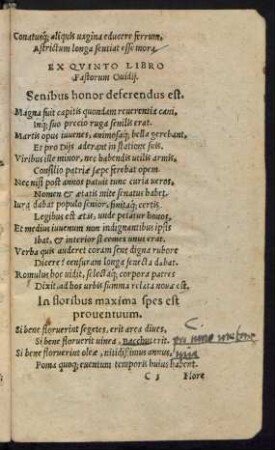 Conatusq; aliquis uagina educere ferrum,
Astrictum longa sentiat esse mora.
EX QVINTO LIBRO
Fastorum Ouidij.
Senibus honor deferendus est.
Magna fuit capitis quondam reuerentia cani,
Inq; suo precio ruga senilis erat.
Martis opus iuuenes, animosaq; bella gerebant,
Et pro dijs aderant in statione suis.
Viribus illa minor, nec habendis utilis armis,
Consilio patriæ sæpe ferebat opem.
Nec nisi post annos patuit tunc curia seros,
Nomen & ætatis mite senatus habet.
Iura dabat populo senior, finitaq; certis
Legibus est ætas, unde petatur honos.
Et medius iuuenum non indignantibus ipsis
Ibat, & interior si comes unus erat.
Verba quis auderet coram sene digna rubore
Dicere? censuram longa senecta dabat.
Romulus hoc uidit, selectaq; corpora patres
Dixit, ad hos urbis summa relata nouæ est.
In floribus maxima spes est
prouentuum.
C.
Si bene floruerint segetes, erit area diues,
Si bene floruerit uinea, Bacchus erit.
Si bene floruerint oleæ, nitidissimus annus,
Poma quoq; euentum temporis huius habent.
C 3 Flore